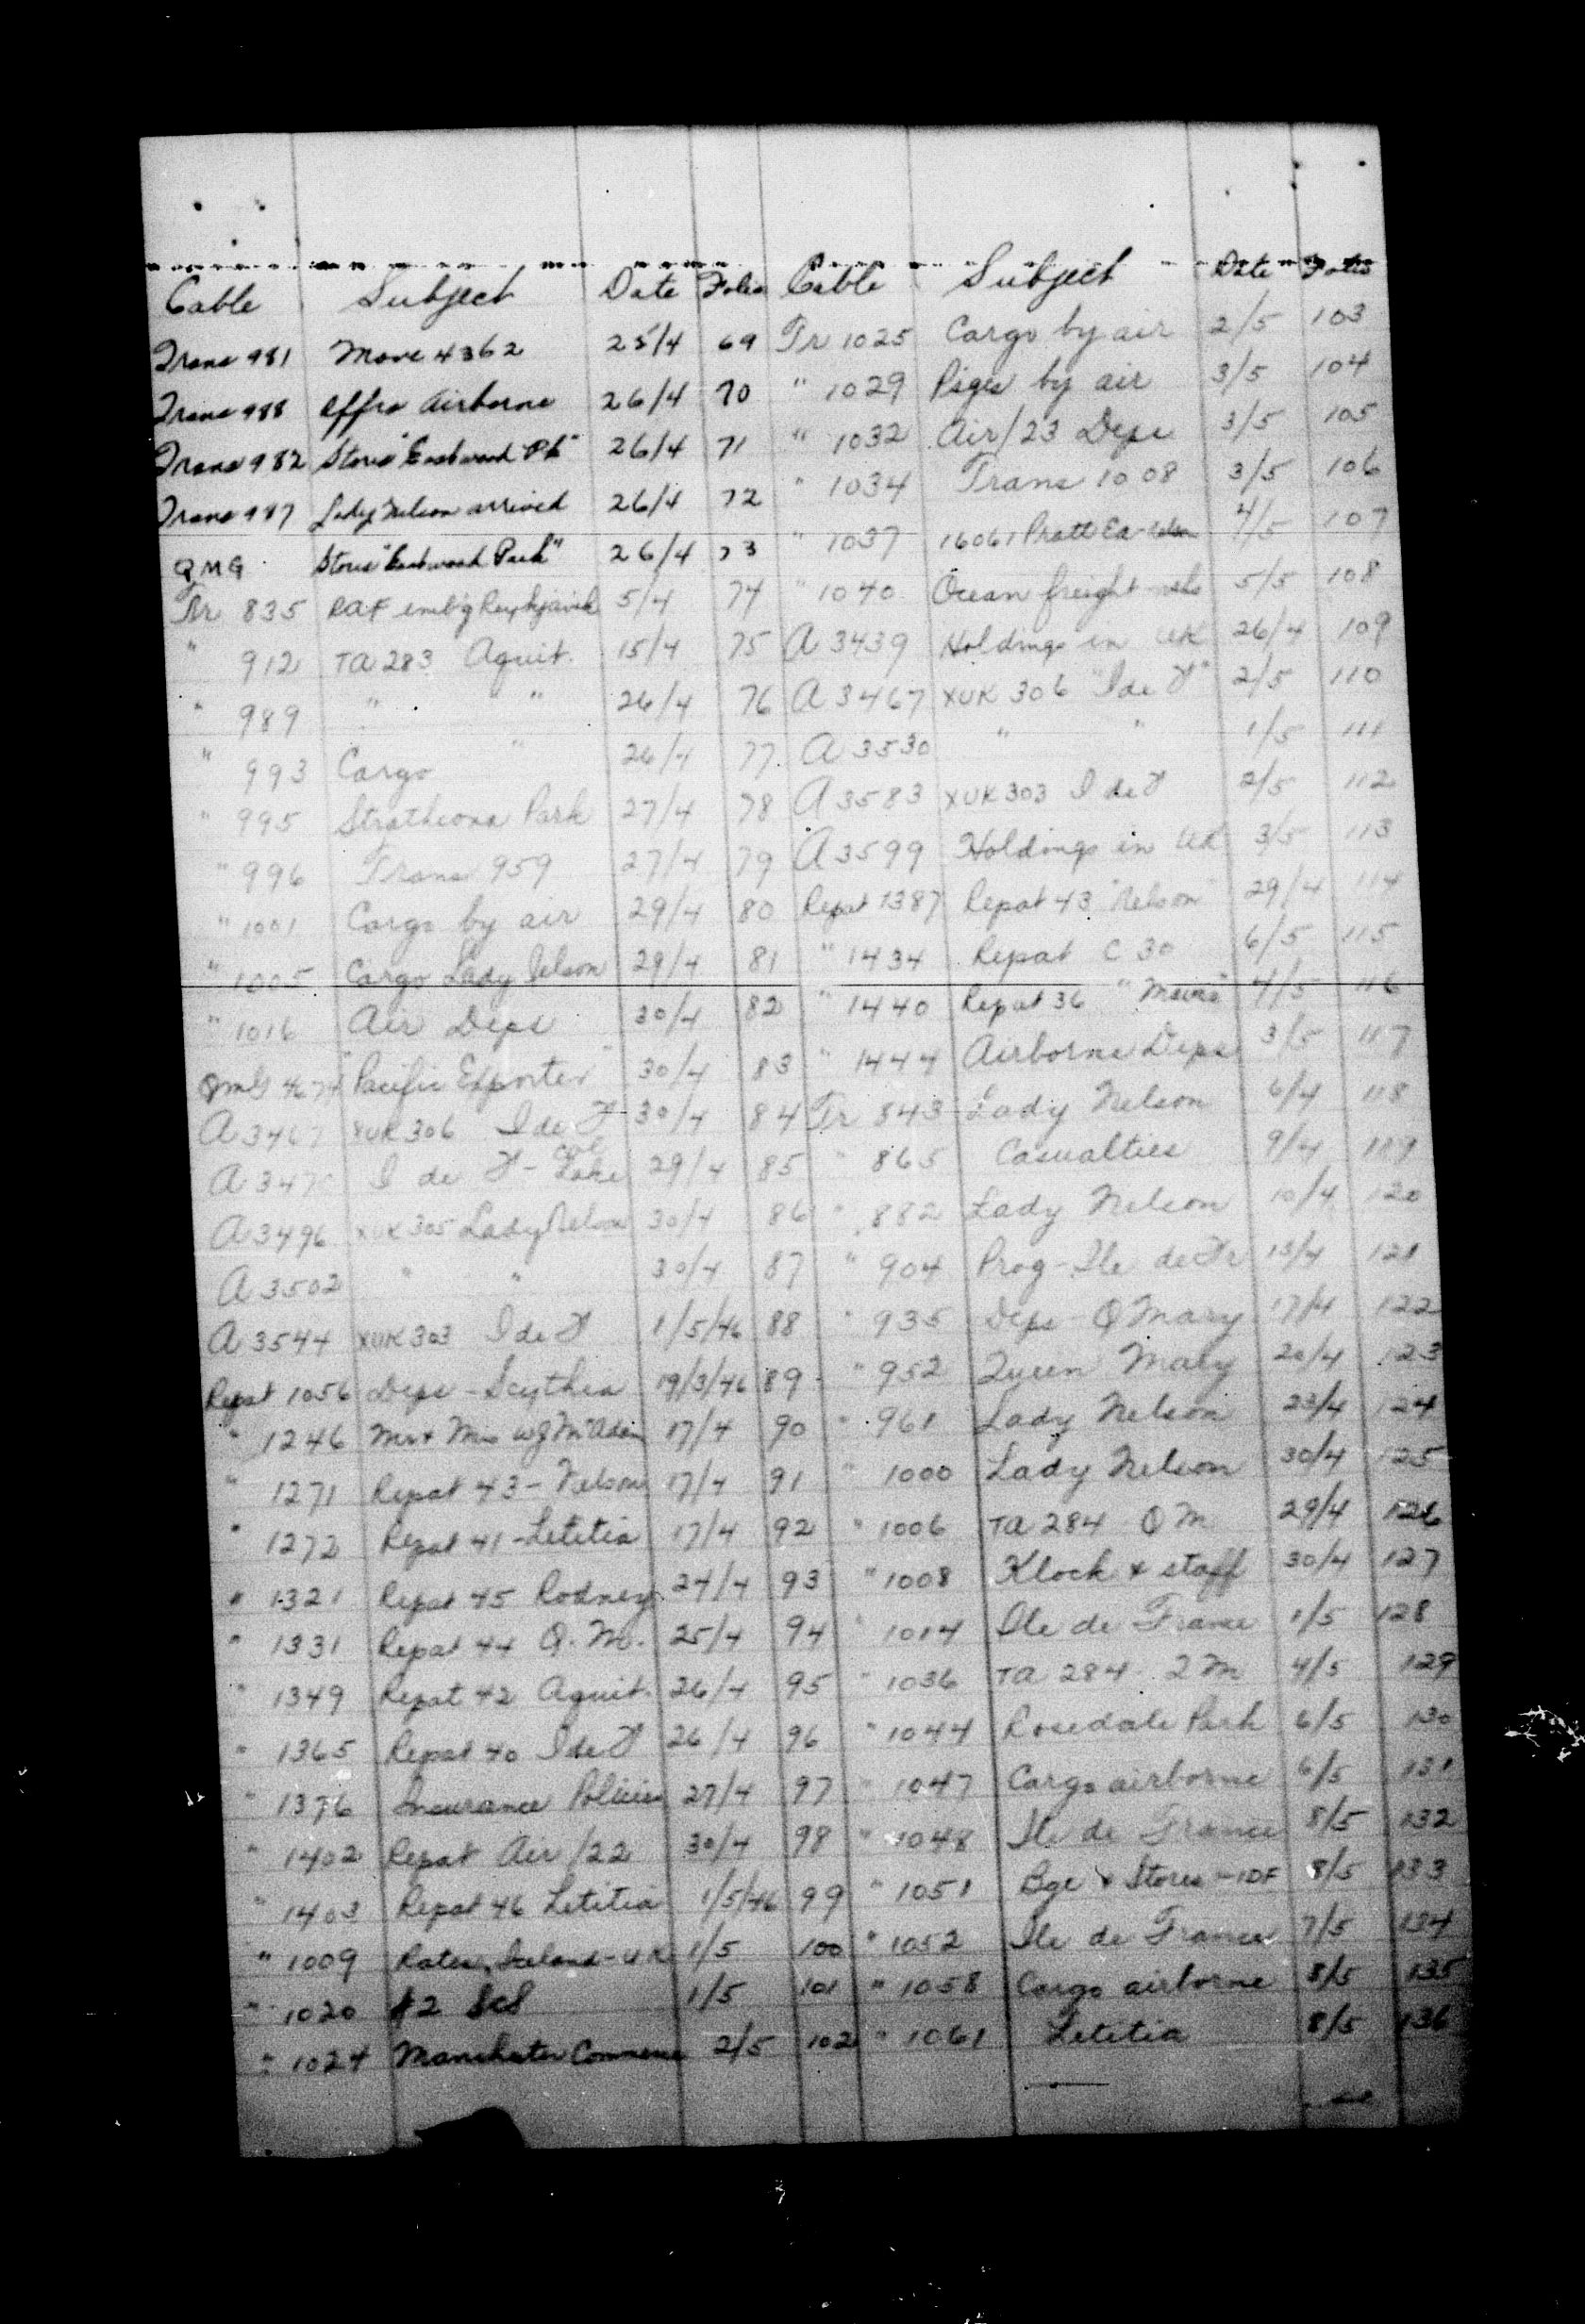 Cable Subject Date Folio Cable Subject Date Folio
Trans 981 Move 4362 25/4 69 Tr 1025 Cargo by air 2/5 103
Trans 988 Effra Airborne 26/4 70 " 1029 Psgrs by air 3/5 104
Trans 982 Stores "Eastwood Pk" 26/4 71 " 1032 Air/23 Deps 3/5 105
Trans 987 Lady Nelson arrived 26/4 72 " 1034 Trans 1008 3/5 106
QMG Stores "Eastwood Park" 26/4 73 " 1037 16061 Pratt 4/5 107
Tr 835 RAF emb'g Reykjavik 5/4 74 " 1040 Ocean freight 5/5 108
" 912 TA 283 Aquit. 15/4 75 A 3439 Holdings in UK 26/4 109
" 989 " " 26/4 76 A 3467 XUK 306 "I de F" 2/5 110
" 993 Cargo " 26/4 77 A 3530 " " 1/5 111
" 995 Strathcona Park 27/4 78 A 3583 XUK 303 I de F 2/5 112
" 996 Trans 959 27/4 79 A 3599 Holdings in UK 3/5 113
" 1001 Cargo by air 29/4 80 Repat 1387 Repat 43 "Nelson" 29/4 114
" 1005 Cargo Lady Nelson 29/4 81 " 1434 Repat C 30 6/5 115
" 1016 Air Deps 30/4 82 " 1440 Repat 36 4/5 116
QMG "Pacific Exporter" 30/4 83 " 1444 Airborne Deps 3/5 117
A 3467 XUK 306 I de F 30/4 84 Tr 843 Lady Nelson 6/4 118
I de F - Col Lake 29/4 85 " 865 Casualties 9/4 119
A 3496 XUK 305 Lady Nelson 30/4 86 " 882 Lady Nelson 10/4 120
A 3502 " " 30/4 87 " 904 Prog - Ile de Fr 13/4 121
A 3544 XUK 303 I de F 1/5/46 88 " 935 Deps - Q Mary 17/4 122
Repat 1056 Deps - Scythia 19/3/46 89 " 952 Queen Mary 20/4 123
" 1246 Mr & Mrs W J McAdam 17/4 90 " 961 Lady Nelson 23/4 124
" 1271 Repat 43 - Nelson 17/4 91 " 1000 Lady Nelson 30/4 125
" 1272 Repat 41 - Letitia 17/4 92 " 1006 TA 284 Q M 29/4 126
" 1321 Repat 45 Rodney 24/4 93 " 1008 Klock & staff 30/4 127
" 1331 Repat 44 Q. M. 25/4 94 " 1014 Ile de France 1/5 128
" 1349 Repat 42 Aquit. 26/4 95 " 1036 TA 284 - Q M 4/5 129
" 1365 Repat 40 I de F 26/4 96 " 1044 Rosedale Park 6/5 130
" 1376 Insurance Policies 27/4 97 " 1047 Cargo airborne 6/5 131
" 1402 Repat Air/22 30/4 98 " 1048 Ile de France 8/5 132
" 1403 Repat 46 Letitia 1/5/46 99 " 1051 Bge & Stores - IDF 8/5 133
" 1009 Rates, Iceland - UK 1/5 100 " 1052 Ile de France 7/5 134
" 1020 #2 SCS 1/5 101 " 1058 Cargo airborne 8/5 135
" 1024 Manchester Commerce 2/5 102 " 1061 Letitia 8/5 136